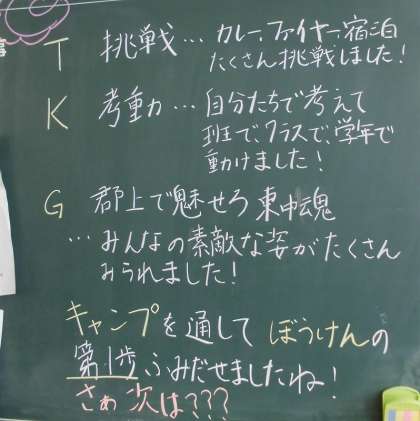 T 挑戦…カレー、ファイヤー、宿泊
たくさん挑戦しました！
K 考動力…自分たちで考えて
班で、クラスで、学年で
動けました！
G 郡上で魅せろ東中魂
…みんなの素敵な姿がたくさん
みられました！
キャンプを通してぼうけんの
第1歩ふみだせましたね！
さぁ次は???